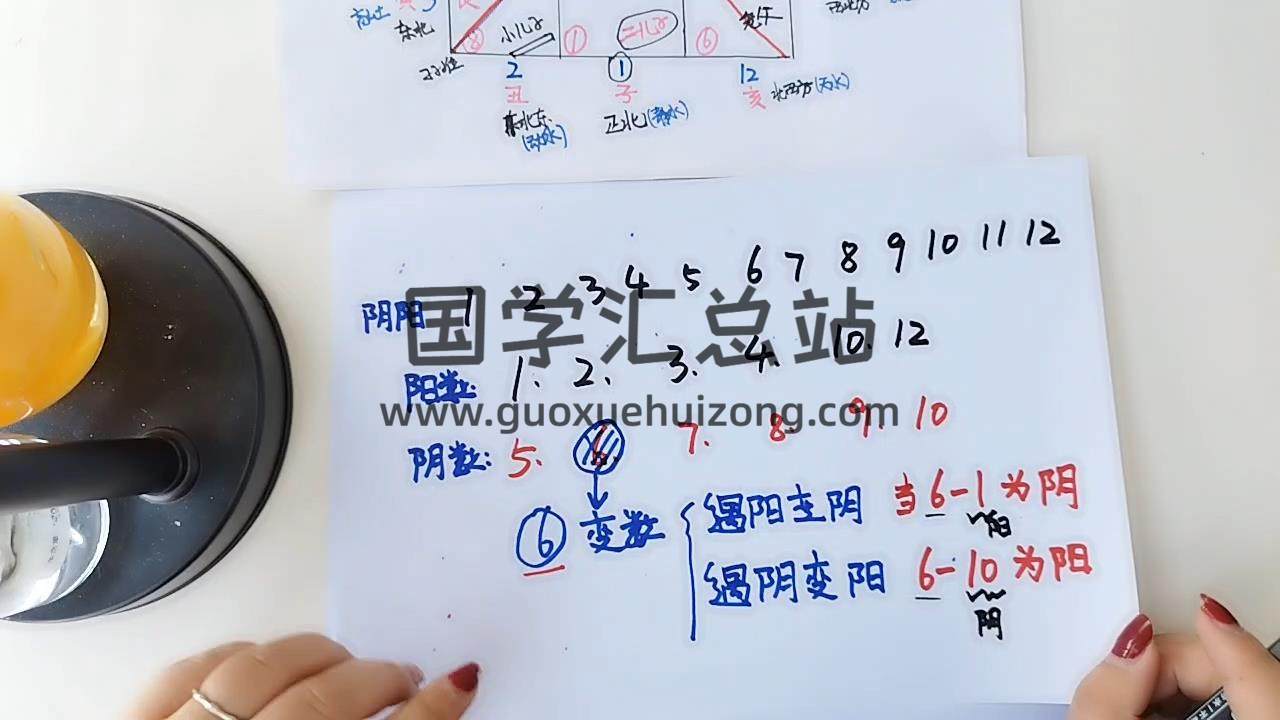 东北
小儿子
二儿子
⑧ ① ⑥
2 1 12
丑 子 亥
正北(静水)
阴阳 1 2 3 4 5 6 7 8 9 10 11 12
国学汇总站
阳数: 1. 2. 3. 4. 10. 12
www.guoxuehuizong.com
阴数: 5. 6. 7. 8. 9. 10
⑥ 变数
遇阳变阴 当6-1为阴
阳
遇阴变阳 6-10为阳
阴